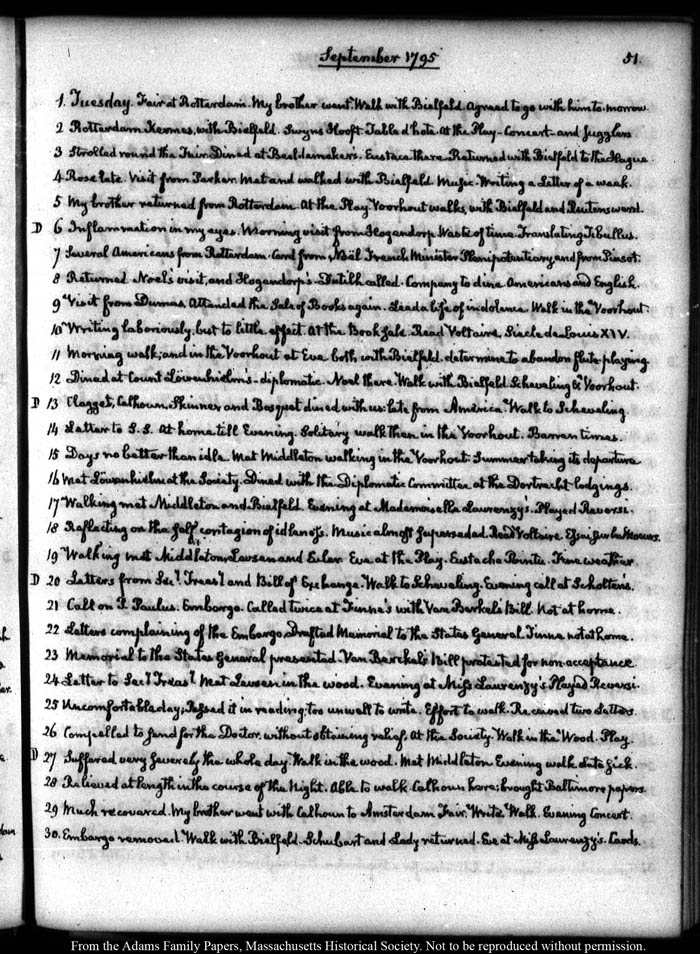 September 1795
51.
1. Tuesday. Fair at Rotterdam. My brother went. Walk with Bielfeld. Agreed to go with him to-morrow.
2 Rotterdam Kermes, with Bielfeld. Swyns Hooft. Table d'hote. At the Play-Concert-and Jugglers
3 Strolled round the Fair. Dined at Beeldemaker's. Eustace there. Returned with Bielfeld to the Hague.
4 Rose late. Visit from Parker. Met and walked with Bielfeld. Music. Writing a Letter of a week.
5 My brother returned from Rotterdam. At the Play. Voorhout walks, with Bielfeld and
D 6 Inflammation in my eyes. Morning visit from Hogendorp. Waste of time. Translating Tibullus.
7 Several Americans from Rotterdam. Card from Noël French Minister Plenipotentiary, and from Pinsot.
8 Returned Noel's visit, and Hogendorp's. Dutilh called. Company to dine Americans and English.
9 Visit from Dumas. Attended the Sale of Books again. Lead a life of indolence. Walk in the Voorhout.
10 Writing laboriously, but to little effect. At the Book sale. Read Voltaire, Siecle de Louis XIV.
11 Morning walk, and in the Voorhout at Eve both, with Bielfeld. determine to abandon flute-playing.
12 Dined at Count Löwenhielm's-diplomatic. Noel there. Walk with Bielfeld. Scheveling & Voorhout.
D 13 Clagget, Calhoun, Skinner and Bosquet dined with us: late from America. Walk to Scheveling.
14 Letter to S.S. At home till Evening. Solitary walk then in the Voorhout. Barren times.
15 Days no better than idle. Met Middleton walking in the Voorhout. Summer taking its departure
16 Met Löwenhielm at the Society. Dined with the Diplomatic Committee at the Dortrecht lodgings.
17 Walking met Middleton and Bielfeld. Evening at Mademoiselle Laurenzy's. Played Reversi.
18 Reflecting on the self contagion of idleness. Music almost superseded. Read Voltaire. Essai sur les Moeurs.
19 Walking met Middleton, Lawsen and Euler. Eve at the Play. Eustache Pointu. Fine weather
D 20 Letters from Secy. Treasy and Bill of Exchange. Walk to Scheveling. Evening call at Scholten's.
21 Call on P. Paulus. Embargo. Called twice at Finne's with Van Berkel's Bill. Not at home.
22 Letters complaining of the Embargo. Drafted Memorial to the States General. Finne not at home.
23 Memorial to the States General presented. Van Berckel's Bill protested for non-acceptance
24 Letter to Secy. Treasy. Met Lawsen in the wood. Evening at Miss Laurenzy's. Played Reversi.
25 Uncomfortable day; Passed it in reading: too unwell to write. Effort to walk. Received two Letters.
26 Compelled to send for the Doctor, without obtaining relief. At the Society. Walk in the Wood. Play.
D 27 Suffered very severely the whole day. Walk in the wood. Met Middleton. Evening walk. Late sick.
28 Relieved at length in the course of the Night. Able to walk. Calhoun here; brought Baltimore papers.
29 Much recovered. My brother went with Calhoun to Amsterdam Fair. Write. Walk. Evening Concert.
30. Embargo removed. Walk with Bielfeld. Schubart and Lady returned. Eve at Miss Laurenzy's. Cards.
From the Adams Family Papers, Massachusetts Historical Society. Not to be reproduced without permission.